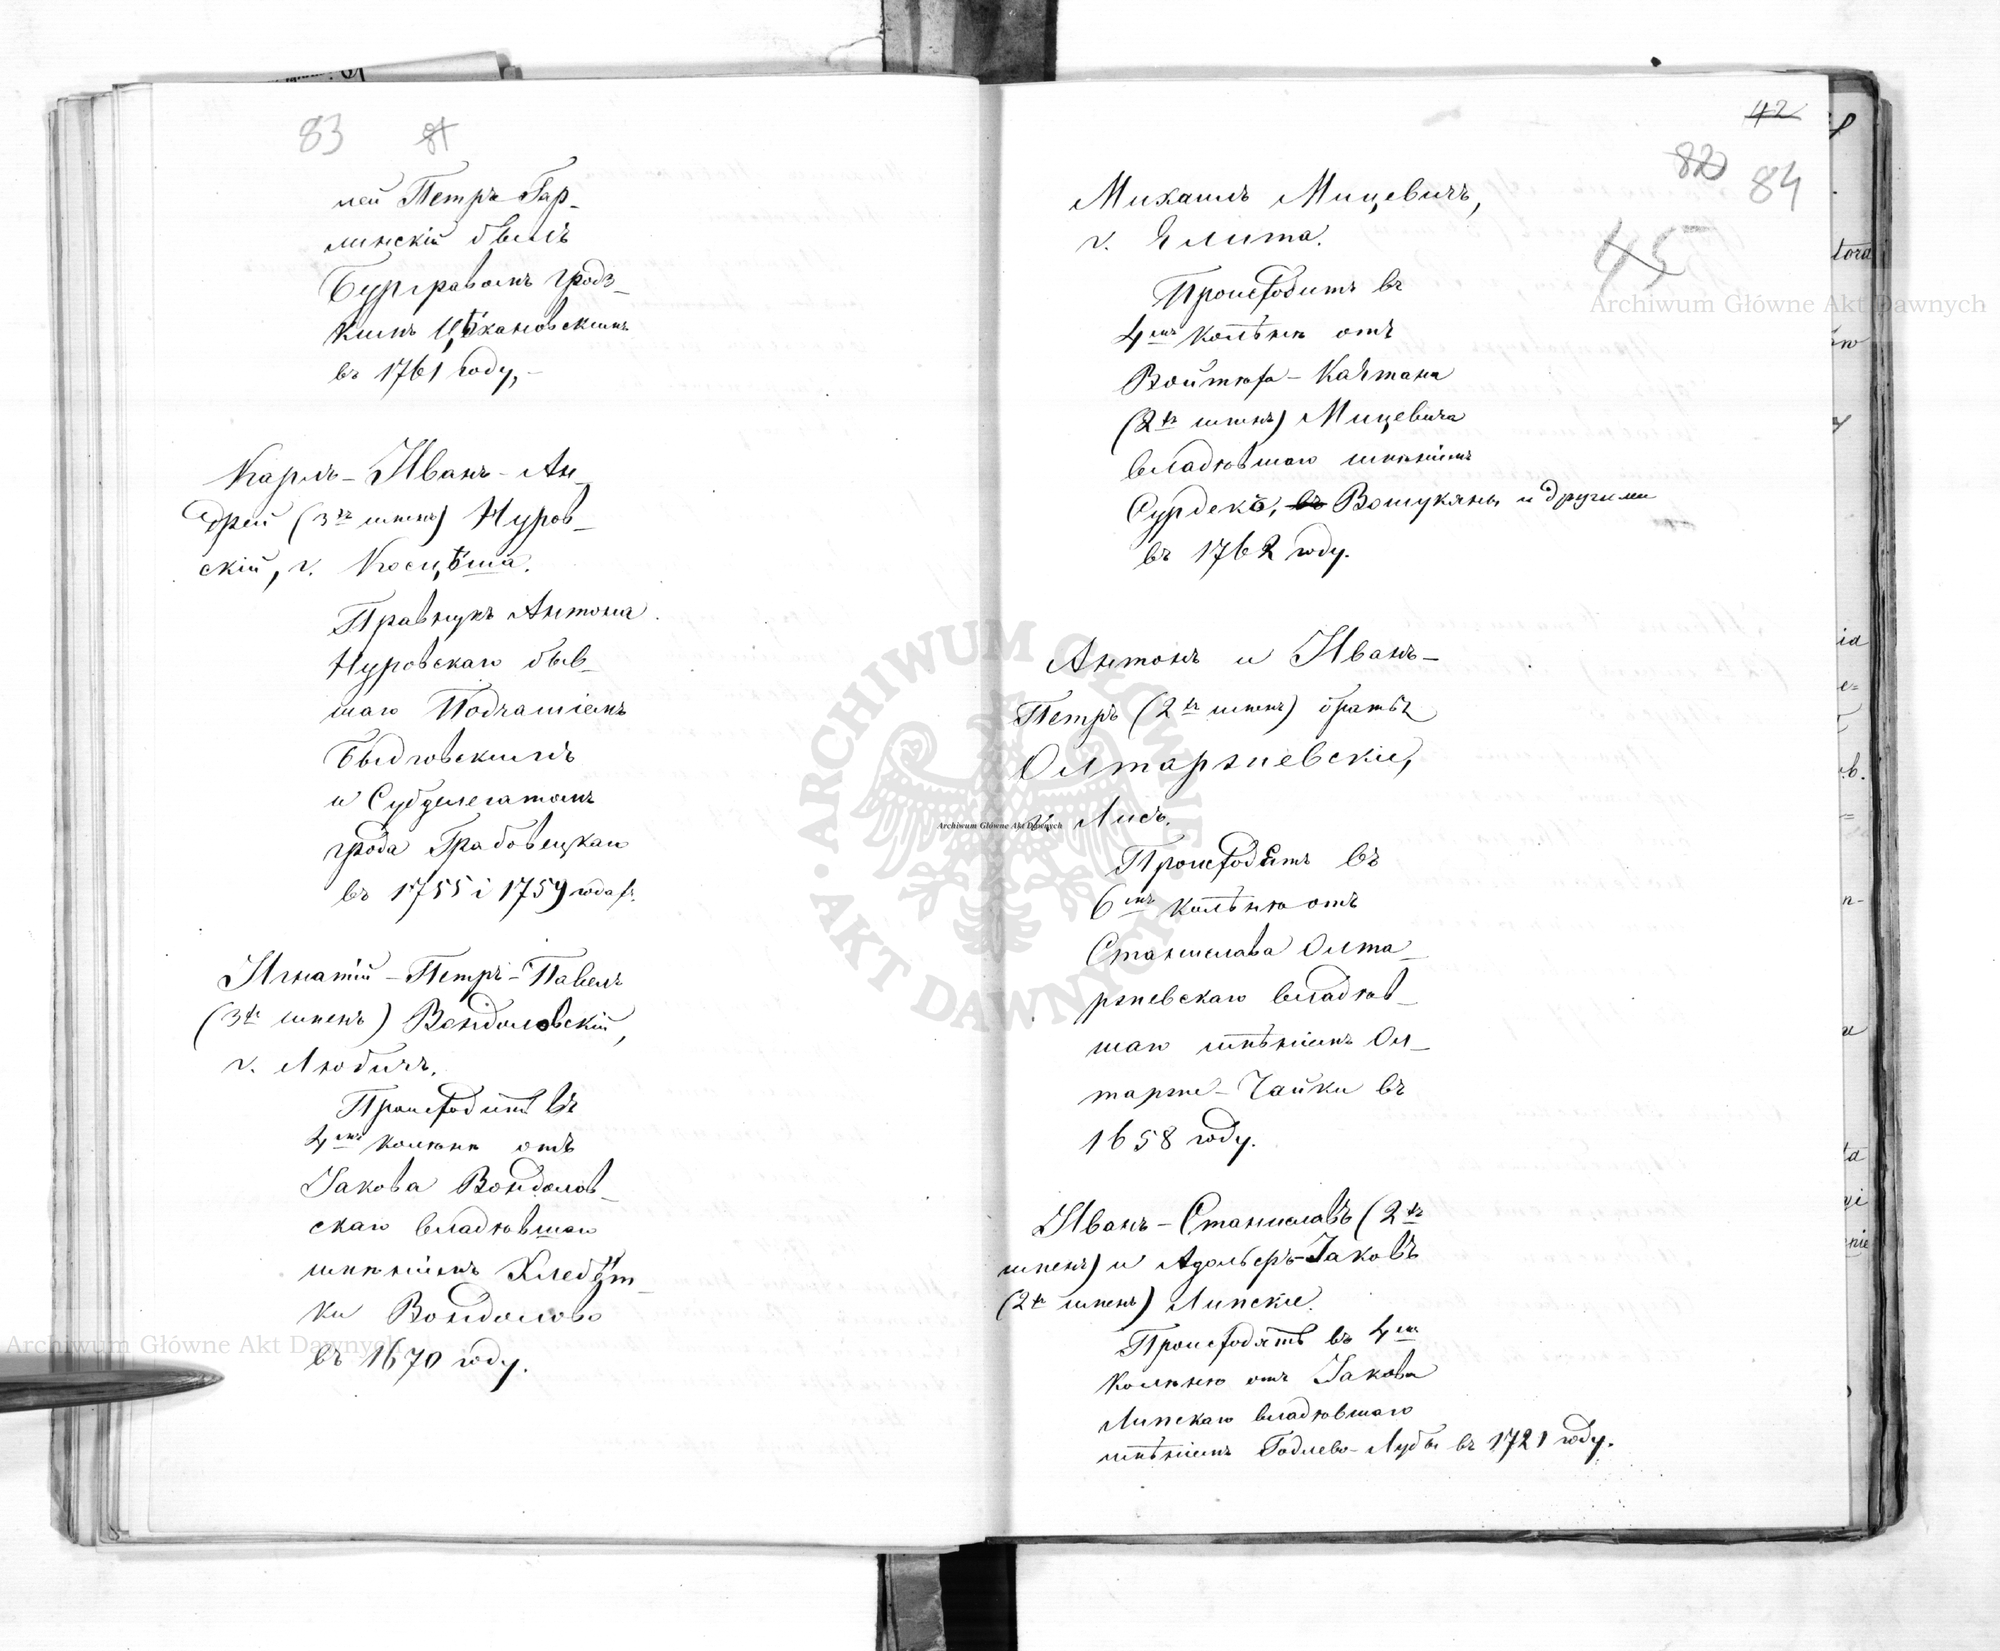 83 81
ней Петръ Гар-
линскій былъ
Бургравомъ грод-
кимъ Цѣхановскимъ
въ 1761 году,-
Карлъ-Иванъ-Ан-
дрей (3хъ именъ) Нуров-
скій, г. Косцѣша.
Правнукъ Антона
Нуровскаго быв-
шаго Подчашіемъ
Быдговскимъ
и Субделегатомъ
грода Грабовецкаго
въ 1755 і 1759 годахъ.
Игнатій-Петръ-Павелъ
(3хъ именъ) Вондоловскій,
г. Любичъ.
Происходитъ въ
4мъ колѣнѣ отъ
Іакова Вондолов-
скаго владѣвшаго
имѣніемъ
ки Вондолово
въ 1670 году.
42
82 84
45
Михаилъ Мицевичъ,
г. Елита.
Происходитъ въ
4мъ колѣнѣ отъ
Войтѣха-Каэтана
(2хъ именъ) Мицевича
владѣвшаго имѣніемъ
Сурдекъ, въ Вошукяны и другими
въ 1762 году.
Антонъ и Иванъ-
Петръ (2хъ именъ) братья
Олтаржевскіе,
г. Лисъ.
Происходятъ въ
6мъ колѣнѣ отъ
Станислава Олта-
ржевскаго владѣв-
шаго имѣніемъ Ол-
тарже-Чайки въ
1658 году.
Иванъ-Станиславъ (2хъ
именъ) и Адольфъ-Іаковъ
(2хъ именъ) Липскіе.
Происходятъ въ 4мъ
колѣнѣ отъ Іакова
Липскаго владѣвшаго
имѣніемъ Годлево-Лубы въ 1721 году.
Archiwum Główne Akt Dawnych
Archiwum Główne Akt Dawnych
Archiwum Główne Akt Dawnych
ARCHIWUM GŁÓWNE AKT DAWNYCH